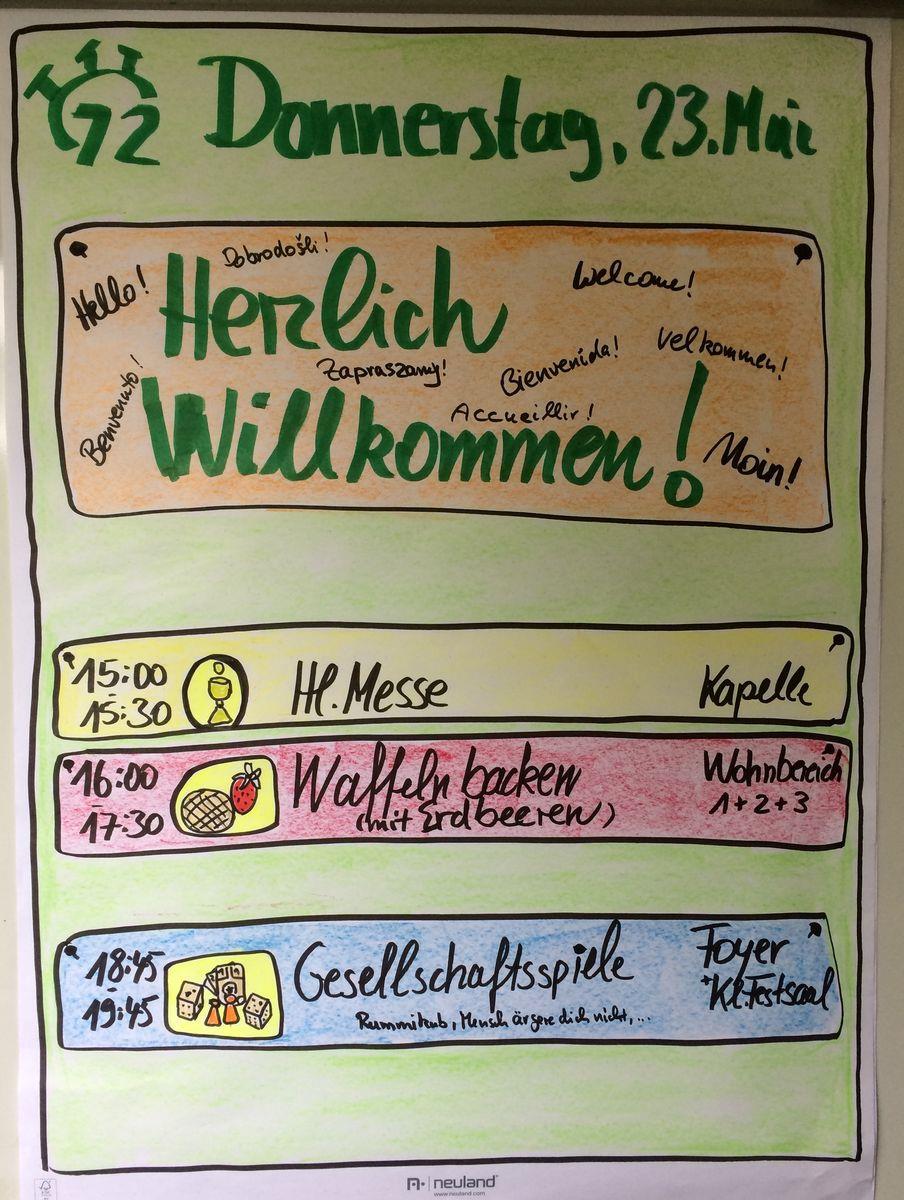 72 Donnerstag, 23. Mai
Dobrodošli!
Hello!
Welcome!
Herzlich
Velkommen!
Zapraszamy!
Bienvenida!
Benvenuto!
Accueillir!
Willkommen!
Moin!
15:00 - 15:30 Hl. Messe Kapelle
16:00 - 17:30 Waffeln backen Wohnbereich
(mit Erdbeeren) 1+2+3
18:45 - 19:45 Gesellschaftsspiele Foyer
+ Kl. Festsaal
Rummikub, Mensch ärgere dich nicht,...
neuland
www.neuland.com